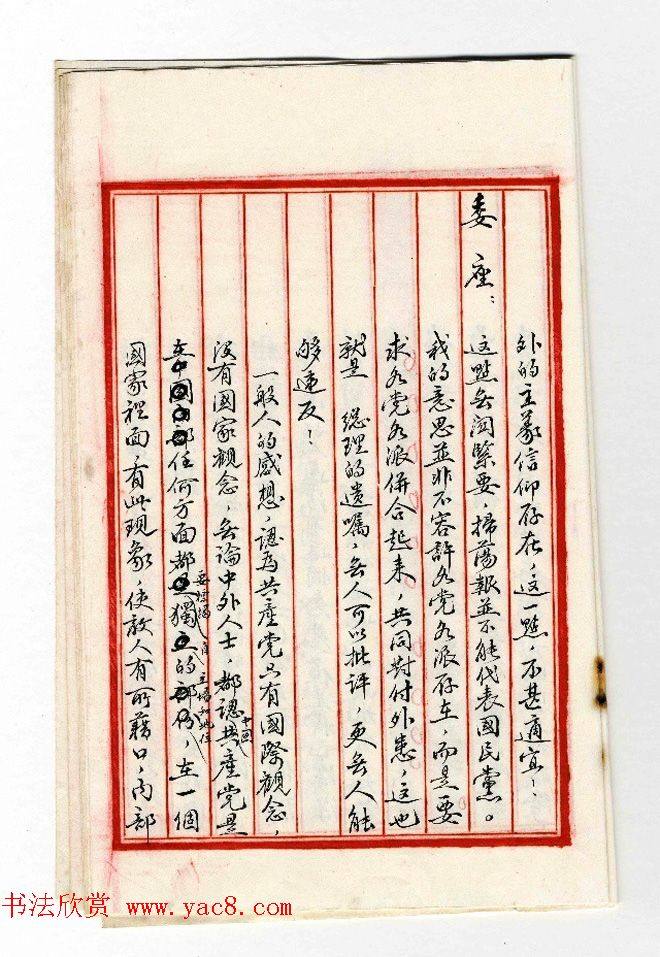 外的主義信仰存在，这一點，不甚適宜！
委座：這點無関緊要，掃蕩報並不能代表國民黨。
我的意思並非不容許各党各派存在，而是要
求各党各派併合起来，共同對付外患，这也
就是 總理的遺囑，無人可以批評，更無人能
够違反！
一般人的感想，認為共產党只有國際觀念，
没有國家觀念，無論中外人士，都認中國共產党是
在任何方面都要標榜獨自的立場和地位，在一個
國家裡面，有此現象，使敵人有所藉口，内部
书法欣赏 www.yac8.com